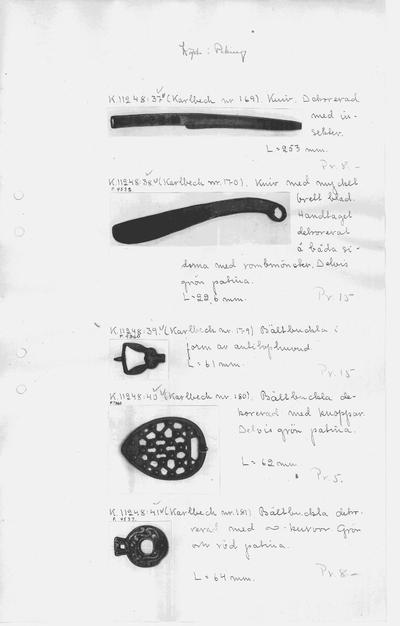 Köpt: Peking
K.11248:37 (Karlbeck nr 169). Kniv. Dekorerad
med in-
sekter.
L = 253 mm.
Pr. 8.-
K.11248:38 (Karlbeck nr 170). Kniv med mycket
brett blad.
Handtaget
dekorerat
å båda si-
dorna med rombmönster. Delvis
grön patina.
L = 22,6 mm.
Pr. 15
K.11248:39 (Karlbeck nr 179) Bältbuckla i
form av antilophuvud.
L = 61 mm.
Pr. 15
K.11248:40 (Karlbeck nr. 180). Bältbuckla de-
korerad med knoppar.
Delvis grön patina.
L = 62 mm.
Pr. 5.
K.11248:41 (Karlbeck nr. 181) Bältbuckla deko-
rerad med ∞-kurvor. Grön
och röd patina.
L = 64 mm.
Pr. 8 -